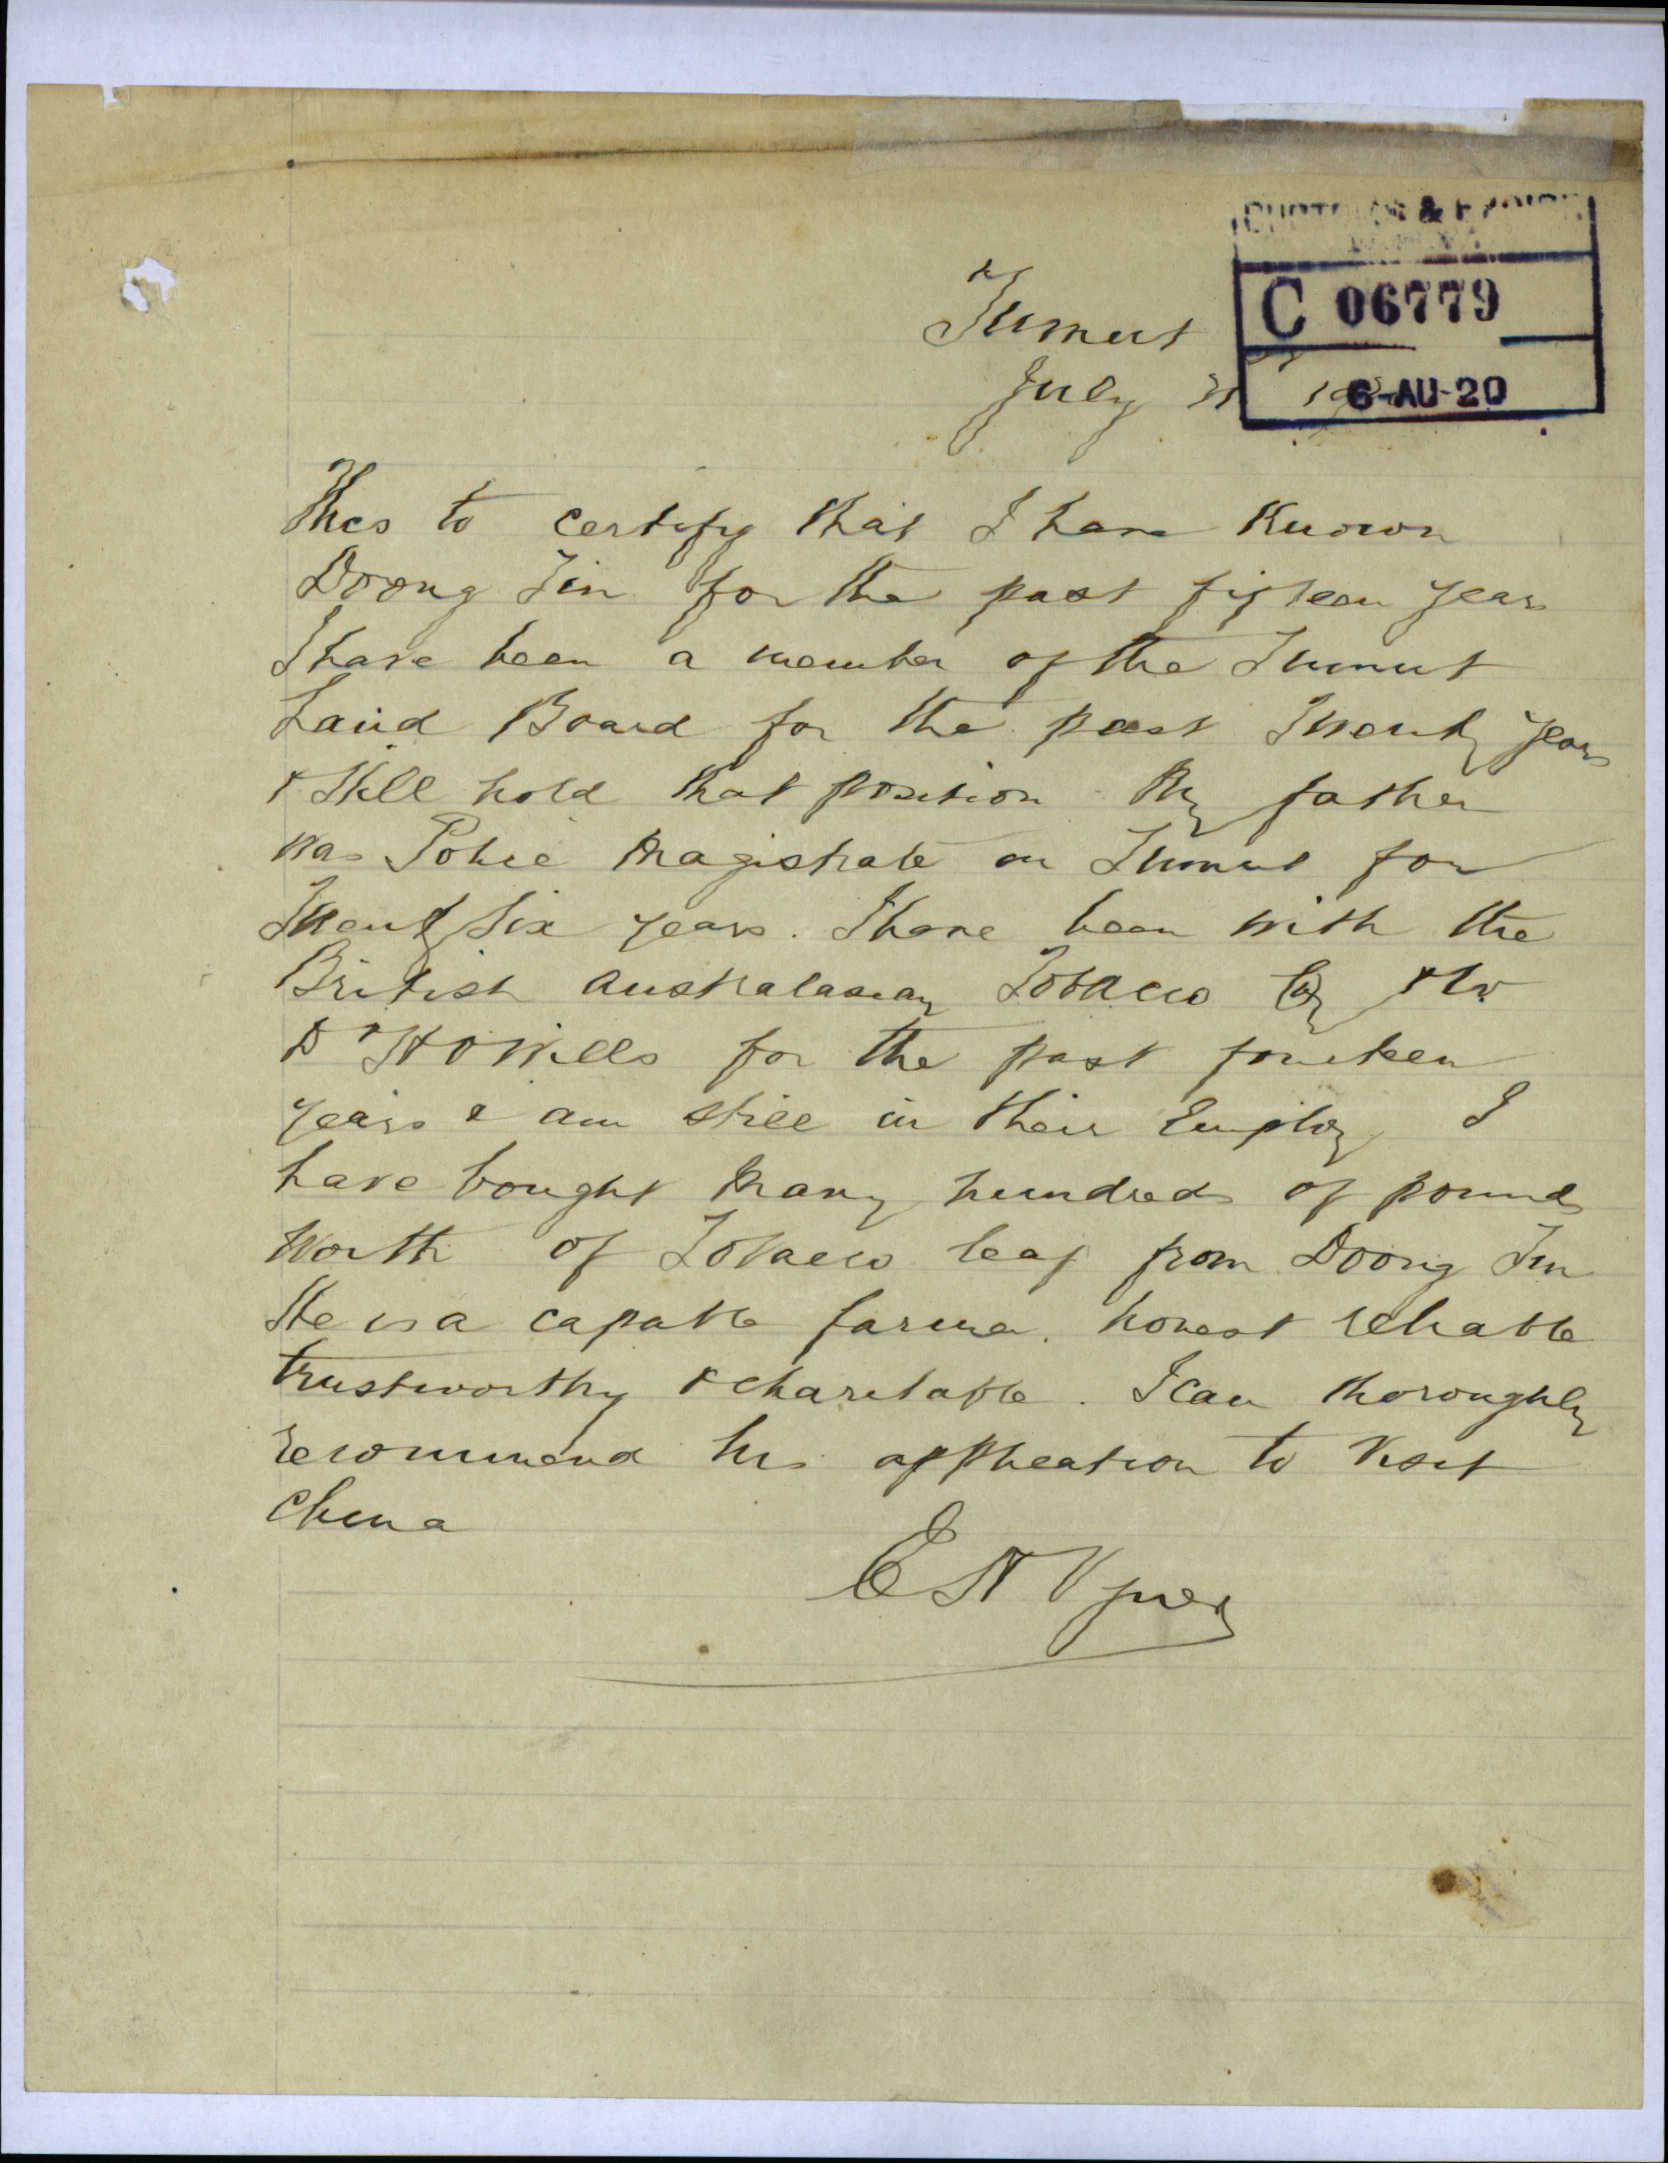 CUSTOMS & EXCISE
C 06779
6-AU-20
Tumut
July 31
This to certify that I have Known
Doong Tin for the past fifteen years
I have been a member of the Tumut
Land Board for the past Twenty years
& Still hold that position My father
was Police Magistrate in Tumut for
Twenty Six years. I have been with the
British Australasian Tobacco Coy
W D & H O Wills for the past fourteen
years & am still in their Employ I
have bought Many hundreds of pounds
Worth of Tobacco leaf from Doong Tin
He is a capable farmer. honest reliable
trustworthy & charitable. I can thoroughly
recommend his application to Visit
China
E H Vyner